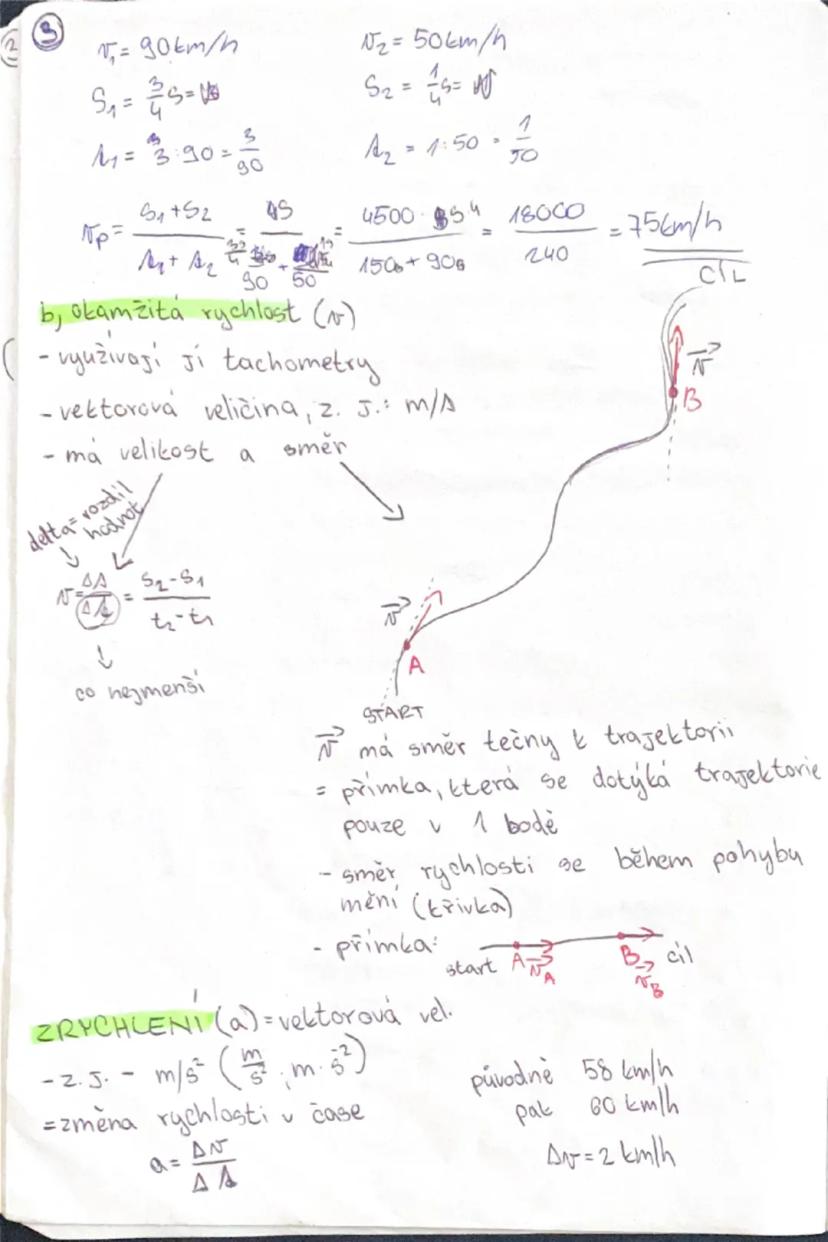 3
v₁ = 90 km/h v₂ = 50 km/h
S₁ = 3/4 s = S₂ = 1/4 s =
t₁ = 3 : 90 = 3/90 t₂ = 1 : 50 = 1/50
vp = (S₁ + S₂)/(t₁ + t₂) = 4s/( /90 + /50) = 4500 · s 4/(150s + 90s) = 18000/240 = 75 km/h
CÍL
b, okamžitá rychlost (v)
- využívají jí tachometry
- vektorová veličina, z. j.: m/s
- má velikost a směr
v→
B
delta = rozdíl
hodnot
v = Δs/Δt = (s₂ - s₁)/(t₂ - t₁)
co nejmenší
v→
A
START
v→ má směr tečny k trajektorii
= přímka, která se dotýká trajektorie
pouze v 1 bodě
- směr rychlosti se během pohybu
mění (křivka)
- přímka:
start A v→A B v→B cíl
ZRYCHLENÍ (a) = vektorová vel.
- z. j. - m/s² (m/s², m·s⁻²)
= změna rychlosti v čase
a = Δv/Δt
původně 58 km/h
pak 60 km/h
Δv = 2 km/h